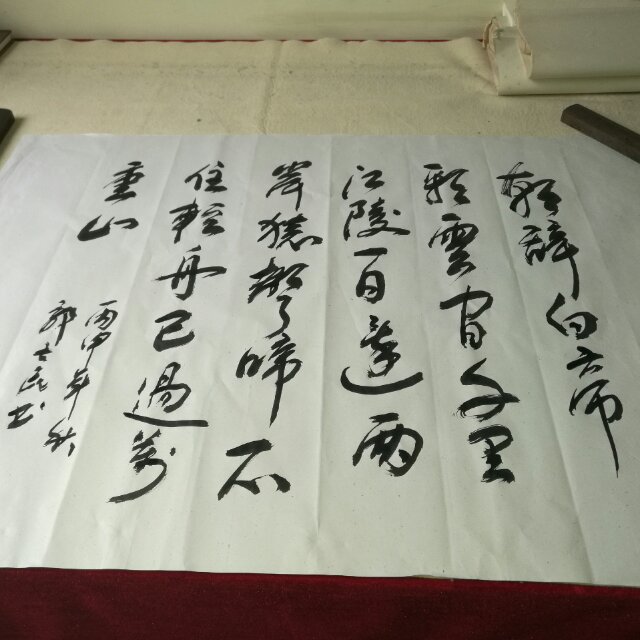 朝辭白帝
彩雲間千里
江陵一日還兩
岸猿聲啼不
住輕舟已過萬
重山
丙申年秋